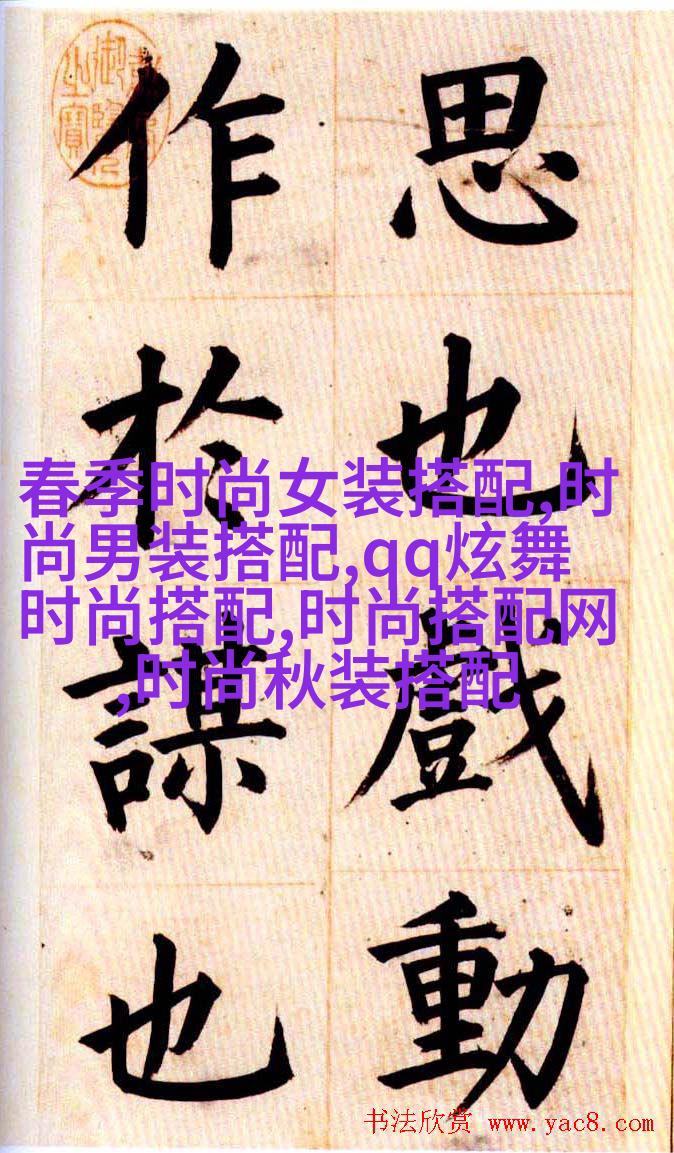 思也戲動
作於謀也
春季时尚女装搭配,时
尚男装搭配,qq炫舞
时尚搭配,时尚搭配网
,时尚秋装搭配
书法欣赏 www.yac8.com